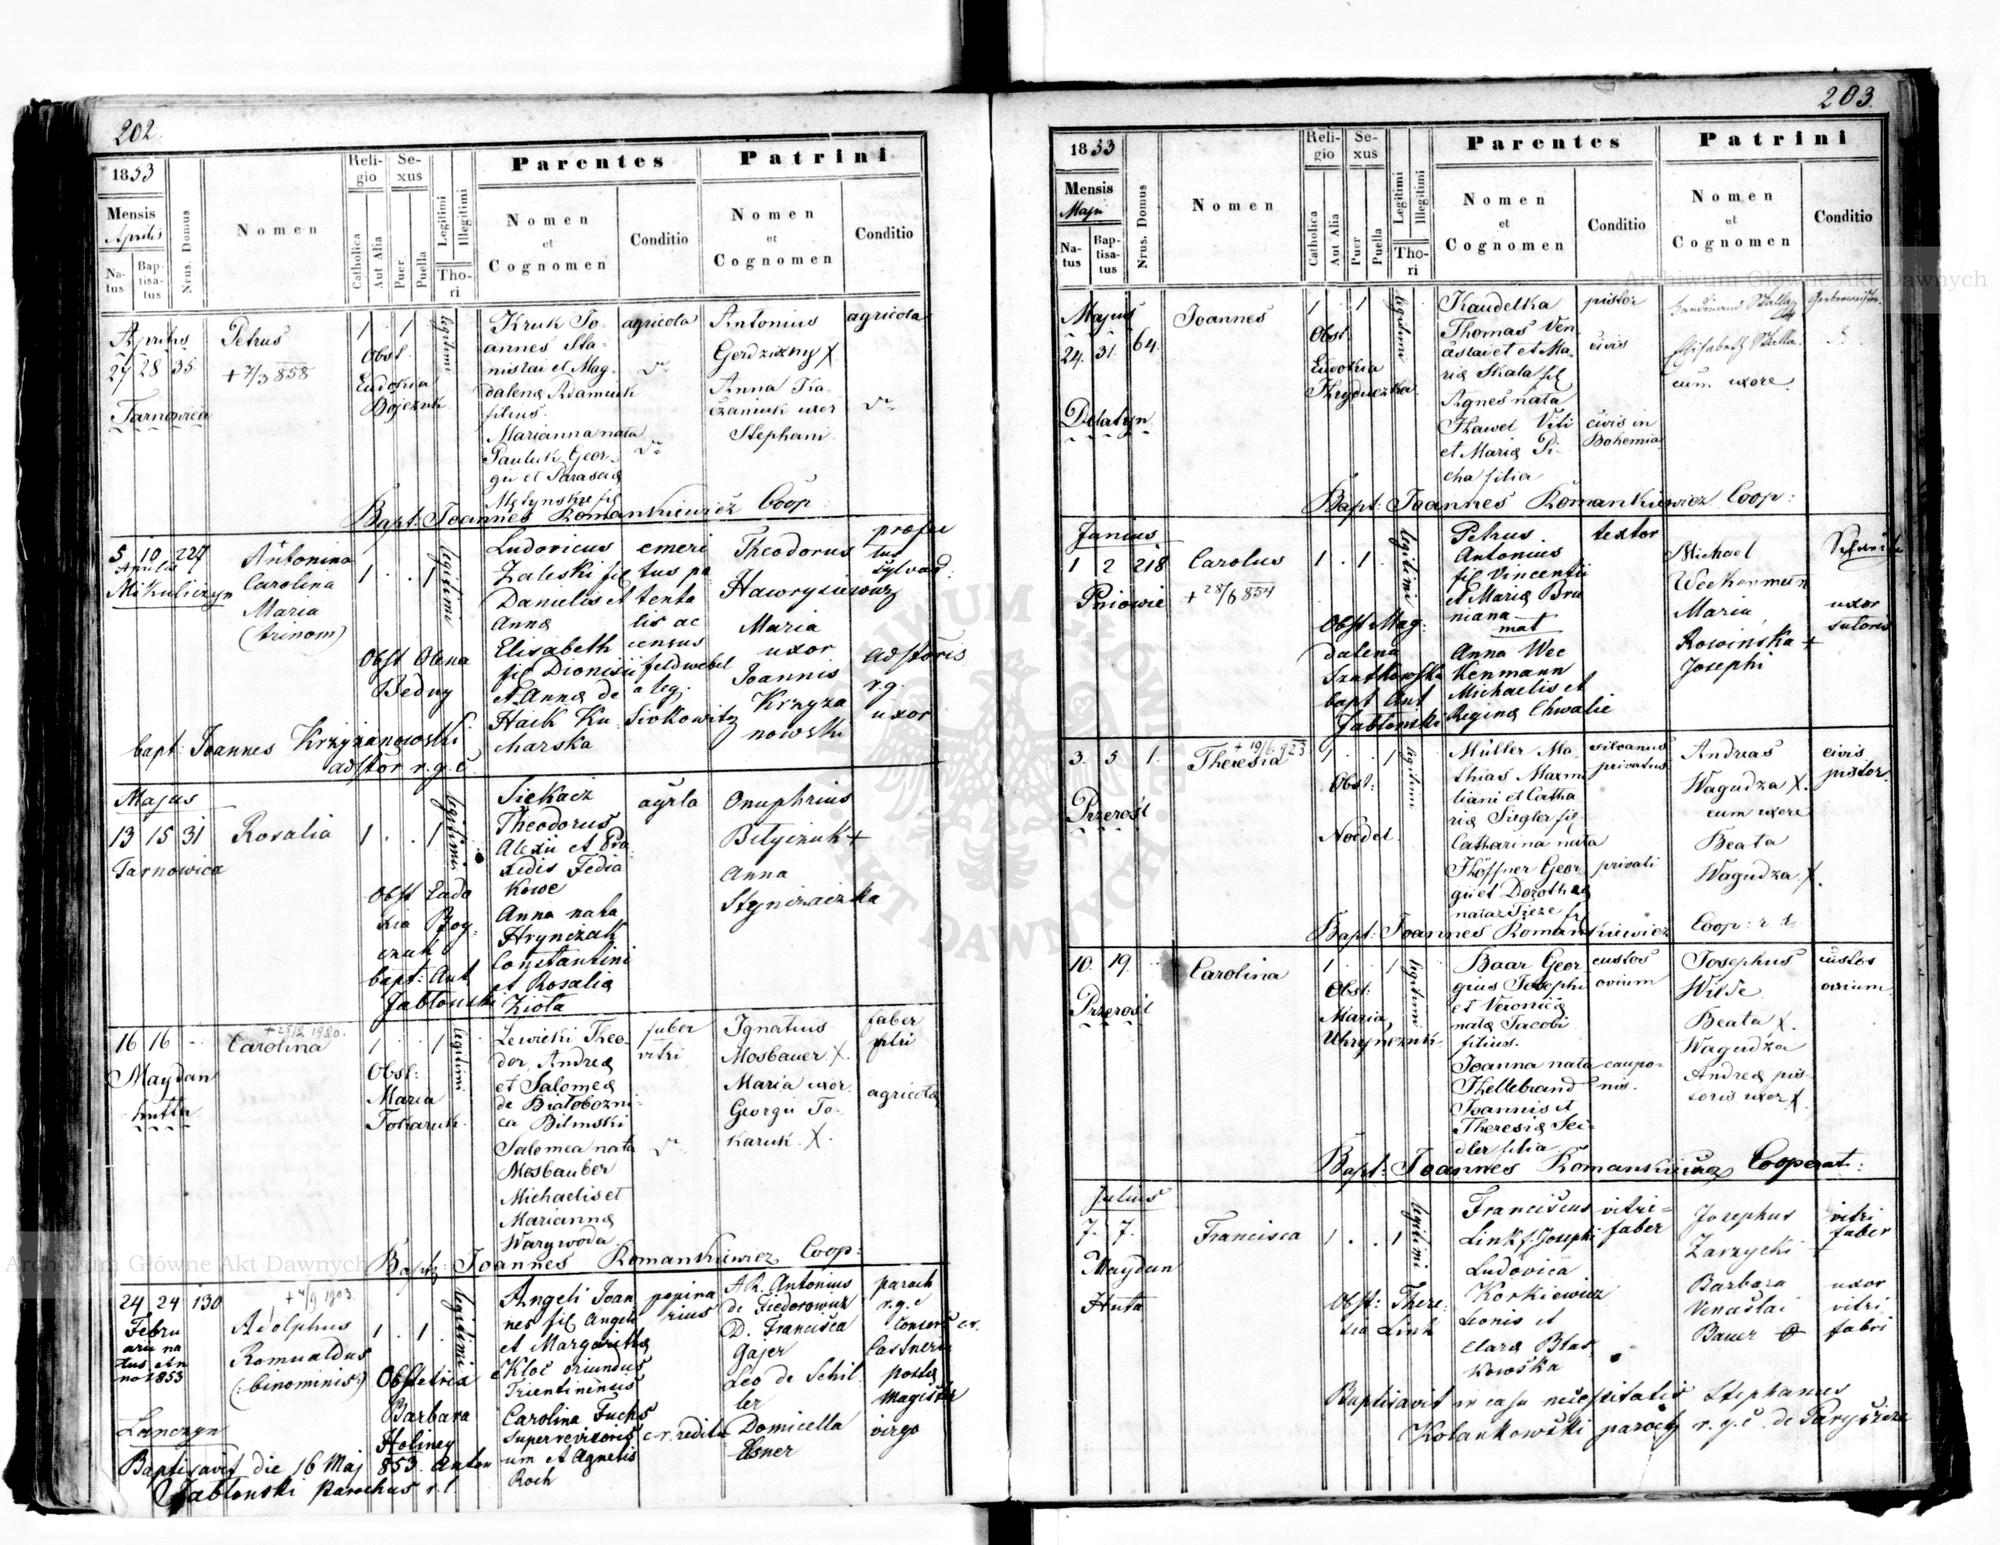 202.
1853
Mensis
Aprilis
Natus
Baptisatus
Nrus. Domus
Nomen
Religio
Catholica
Aut Alia
Sexus
Puer
Puella
Legitimi
Illegitimi
Thori
Parentes
Nomen
et
Cognomen
Conditio
Patrini
Nomen
et
Cognomen
Conditio
Aprilis
27 28 35
Tarnowica
Petrus
+ 7/3 858
1 . 1
Obst.
Eudokia
Bojczuk
legitimi
Kruk Jo-
annes Sta-
nislai et Mag-
dalena Adamiuk
filius.
Marianna nata
Pauluk Geor-
gii et Parascea
agricola
Antonius
Gerdziczny X
Anna
uxor
Stephani
agricola
Bapt: Joannes Romankiewicz Coop
5 10 227
Aprilis
Mikuliczyn
Antonina
Carolina
Maria
(trinom)
1 . . 1
legitimi
Obst Olena
Bedny
Ludovicus
Zaleski fil
Danielis et
Anna
Elisabeth
fil Dionisii
et Anna de
Haik Ku
charska
emeri
tus pa
tenta
lis ac
census
feldwebel
a leg.
Sivkowitz
Theodorus
Hawrysiewicz
Maria
uxor
Joannis
Krzyza
nowski
prefec
tus
sylvar.
adstoris
r.g.
uxor
bapt: Joannes Krzyzanowski
adstor r.g.c.
Majus
13 15 31
Tarnowica
Rosalia
1 . . 1
legitimi
Obst Eudo
kia Bog
czuk
bapt: Ant
Jabłonski
Siekacz
Theodorus
Alexii et Pra
xedis Fedia
Kowe
Anna nata
Hrynczak
Constantini
et Rosalia
Ziola
agrla
Onuphrius
Belyczuk +
Anna
16 16 -
Maydan
hutta
+ 25/2 1920.
Carolina
1 . . 1
Obst:
Maria
Tokaruk.
legitimi
Lewicki Theo-
dor, Andrea
et Salomea
de Białobozni-
ca Bilinski
Salomea nata
Mosbauber
Michaelis et
Marianna
Warywoda.
faber
vitri
Ignatius
Mosbauer X.
Maria uxor
Georgii To-
karuk. X.
faber
vitri
agricola
Bapt: Joannes Romankiewicz Coop:
24 24 130
Febru
arii na
tus etn
no 1853
Lanczyn
+ 4/9 1903.
Adolphus
Romualdus
(: binominis:)
1 . 1 .
Obstetrix
Barbara
Holiney
legitimi
Angeli Joan
nes fil Angeli
et Margaritha
Kloc oriundus
Trientinensis
Carolina Fuchs
Superrevisoris
um et Agnetis
Roch
popina
rius
c.r. reditu
AR. Antonius
de Fiedorowicz
D. Francisca
Gajer
Leo de Schil
ler
Domicella
Elsner
paroch
r.g.c
posta
Magister
virgo
Baptisavit die 16 Maj 853. Anton
Jabłonski Parochus r.l
203.
1853
Mensis
Maji
Natus
Baptisatus
Nrus. Domus
Nomen
Religio
Catholica
Aut Alia
Sexus
Puer
Puella
Legitimi
Illegitimi
Thori
Parentes
Nomen
et
Cognomen
Conditio
Patrini
Nomen
et
Cognomen
Conditio
Majus
24. 31. 64.
Delatyn
Joannes
1 . 1
Obst.
Eudokia
legitimi
Kaudelka
Thomas Ven-
ceslai et Ma-
ria Skala fil
Agnes nata
Hawel Viti
et Maria Pi-
cha filia
pistor
civis
civis in
Bohemia
Elisabeth
cum uxore.
Bapt: Joannes Romankiewicz Coop:
Junius
1 2 218
Pniowie
Carolus
+ 28/6 854
1 . 1 .
legitimi
Obst Mag:
dalena
Szatkowska
bapt Ant
Jabłonski
Petrus
Antonius
fil Vincentii
et Maria Bru
niana
mat
Anna Wec
Kenmann
Michaelis et
Regina Chwalie
textor
Michael
Weckermann
Maria
Rowinska +
Josephi
uxor
sutoris
3. 5 1.
Przerosl
+ 19/6. 923
Theresia
1 . . 1
Obst:
Noedel
legitimi
Müller Ma-
thias Maxmi
liani et Catha
ria Siegler fil.
Catharina nata
Höffner Geor-
gii et Dorothea
silvanus
privatus
privati
Andreas
Wagudza X.
cum uxore
Beata
Wagudza X.
civis
pistor.
Bapt: Joannes Romankiewicz Coop: r. l.
10. 19. .
Przerosl
Carolina
1 . . 1
Obst:
Maria,
Uhrynczuk
legitimi
Baar Geor
gius Josephi
et Veronica
nata Jacobi
filius.
Joanna nata
Hellebrand
Joannis et
Theresia Sei-
dler filia
custos
ovium
caupo-
nis.
Josephus
Wilde
Beata X.
Wagudza
Andrea pis-
toris uxor X.
custos
ovium
Bapt: Joannes Romankiewicz Cooperat:
Julius
7. 7.
Maydan
Huta
Francisca
1 . . 1
Obst: There-
sia Link
legitimi
Franciscus
Link f. Josephi
Ludovica
Korkiewicz
Leonis et
Clara Błas
Kowska
vitri=
faber
Josephus
Zarzycki
Barbara
Venaslai
Bauer
vitri
faber
+
uxor
vitri
fabri
Baptisavit in casu necessitatis Stephanus
Kolankowski paroch r.g.c. de
Archiwum Główne Akt Dawnych
Archiwum Główne Akt Dawnych
ARCHIWUM GŁÓWNE AKT DAWNYCH